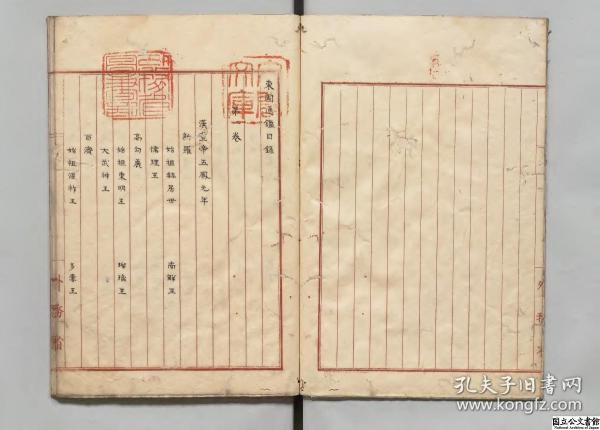 東國通鑑目錄
第一卷
漢宣帝五鳳元年
新羅
始祖赫居世 南解王
儒理王
高句麗
始祖東明王 瑠璃王
大武神王
百濟
始祖溫祚王 多婁王
外務省
外務省
孔夫子旧书网
www.kongfz.com
国立公文書館
National Archives of Japan